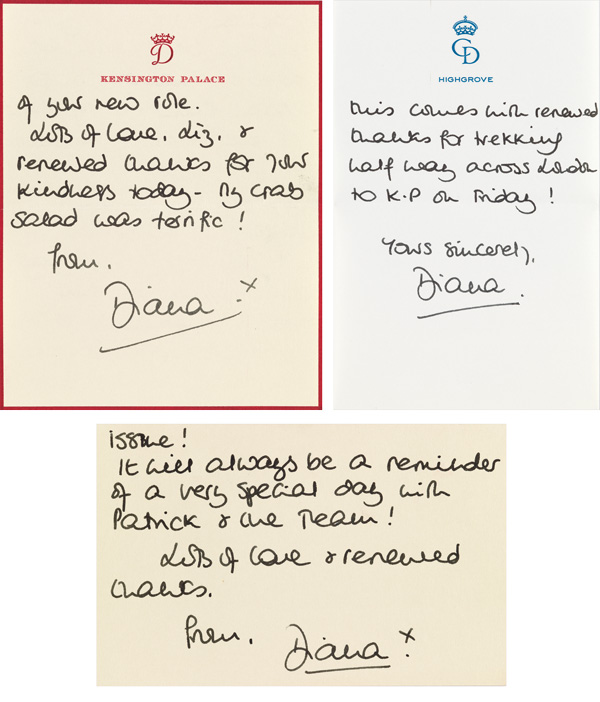 D
KENSINGTON PALACE
of your new role.
Lots of love, Liz, &
renewed thanks for your
kindness today - My crab
salad was terrific!
from,
Diana x
CD
HIGHGROVE
this comes with renewed
thanks for trekking
half way across London
to K.P on Friday!
Yours sincerely,
Diana.
issue!
It will always be a reminder
of a very special day with
Patrick & the Team!
Lots of love & renewed
thanks.
from,
Diana x